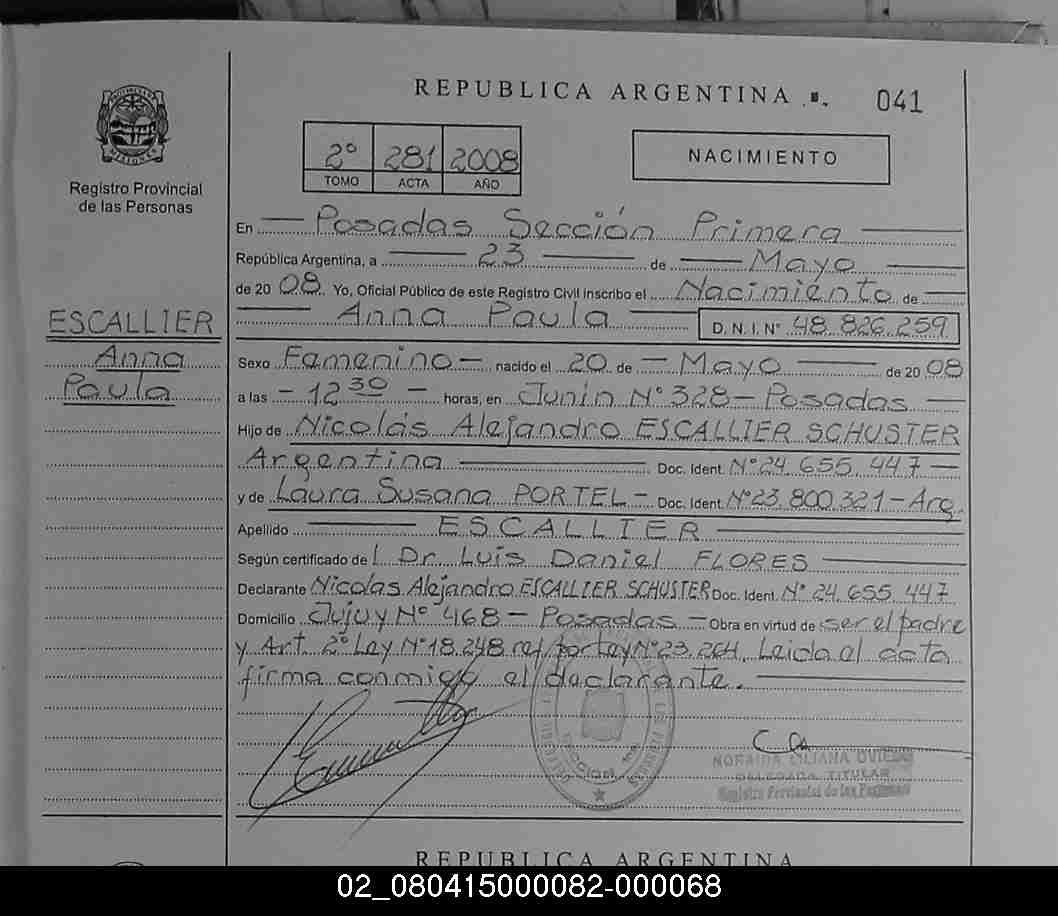 REPUBLICA ARGENTINA
041
PROVINCIA DE MISIONES
Registro Provincial
de las Personas
2º 281 2008
TOMO ACTA AÑO
NACIMIENTO
En Posadas Sección Primera
República Argentina, a 23 de Mayo
de 2008 Yo, Oficial Público de este Registro Civil inscribo el Nacimiento de
Anna Paula D. N. I. Nº 48.826.259
ESCALLIER
Anna
Paula
Sexo Famenino nacido el 20 de Mayo de 2008
a las 12 30 horas, en Junin Nº 328 - Posadas
Hijo de Nicolás Alejandro ESCALLIER SCHUSTER
Argentina Doc. Ident. Nº 24.655.447
y de Laura Susana PORTEL - Doc. Ident. Nº 23.800.321 - Arg.
Apellido ESCALLIER
Según certificado de l Dr Luis Daniel FLORES
Declarante Nicolas Alejandro ESCALLIER SCHUSTER Doc. Ident. Nº 24.655.447
Domicilio Jujuy Nº 468 - Posadas - Obra en virtud de ser el padre
y Art. 2º Ley Nº 18.248 ref. por Ley Nº 23.264. Leida el acta
firma conmigo el declarante.
NORAIDA LILIANA OVIEDO
DELEGADA TITULAR
Registro Provincial de las Personas
REPUBLICA ARGENTINA
02_080415000082-000068